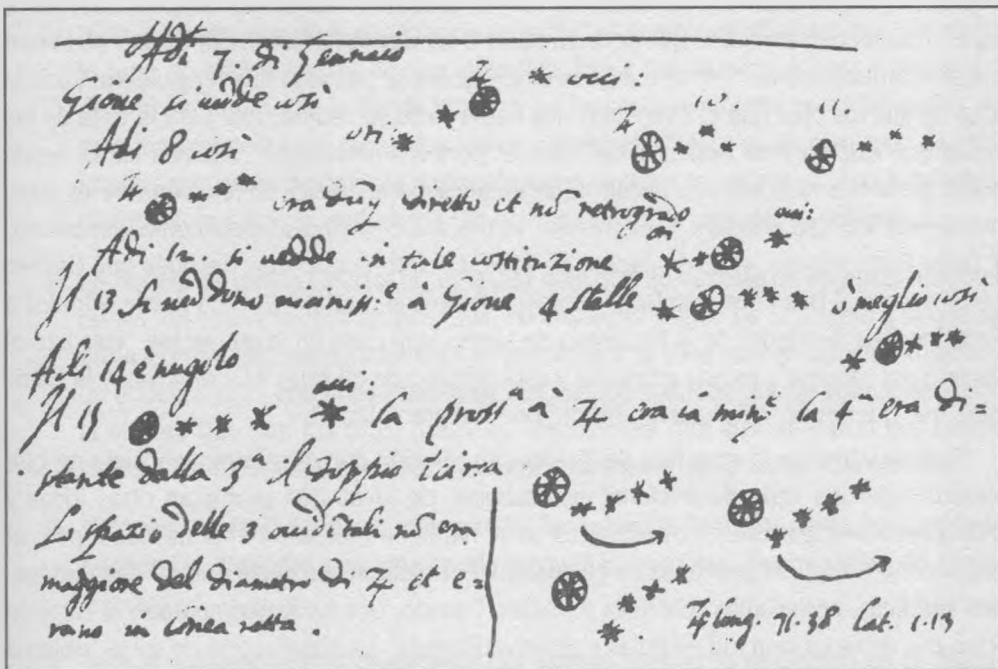 Adi 7 di Gennaio
Gione si vedde così ♃ occi:
Adi 8 così ori ♃
♃ era dūq diretto et nō retrogrado
Adi 12. si vedde in tale costituzione ori occi:
Il 13 si veddono minimiss.e à Gione 4 stelle ò meglio così
Adi 14 è nugolo
Il 15 occi: la pross.a à ♃ era la min.e la 4.a era di=
stante dalla 3.a il doppio Circa
Lo spazio delle 3 occidētali nō era
maggiore del diametro di ♃ et e=
rano in linea retta.
♃ long. 71.38 lat. 1.13